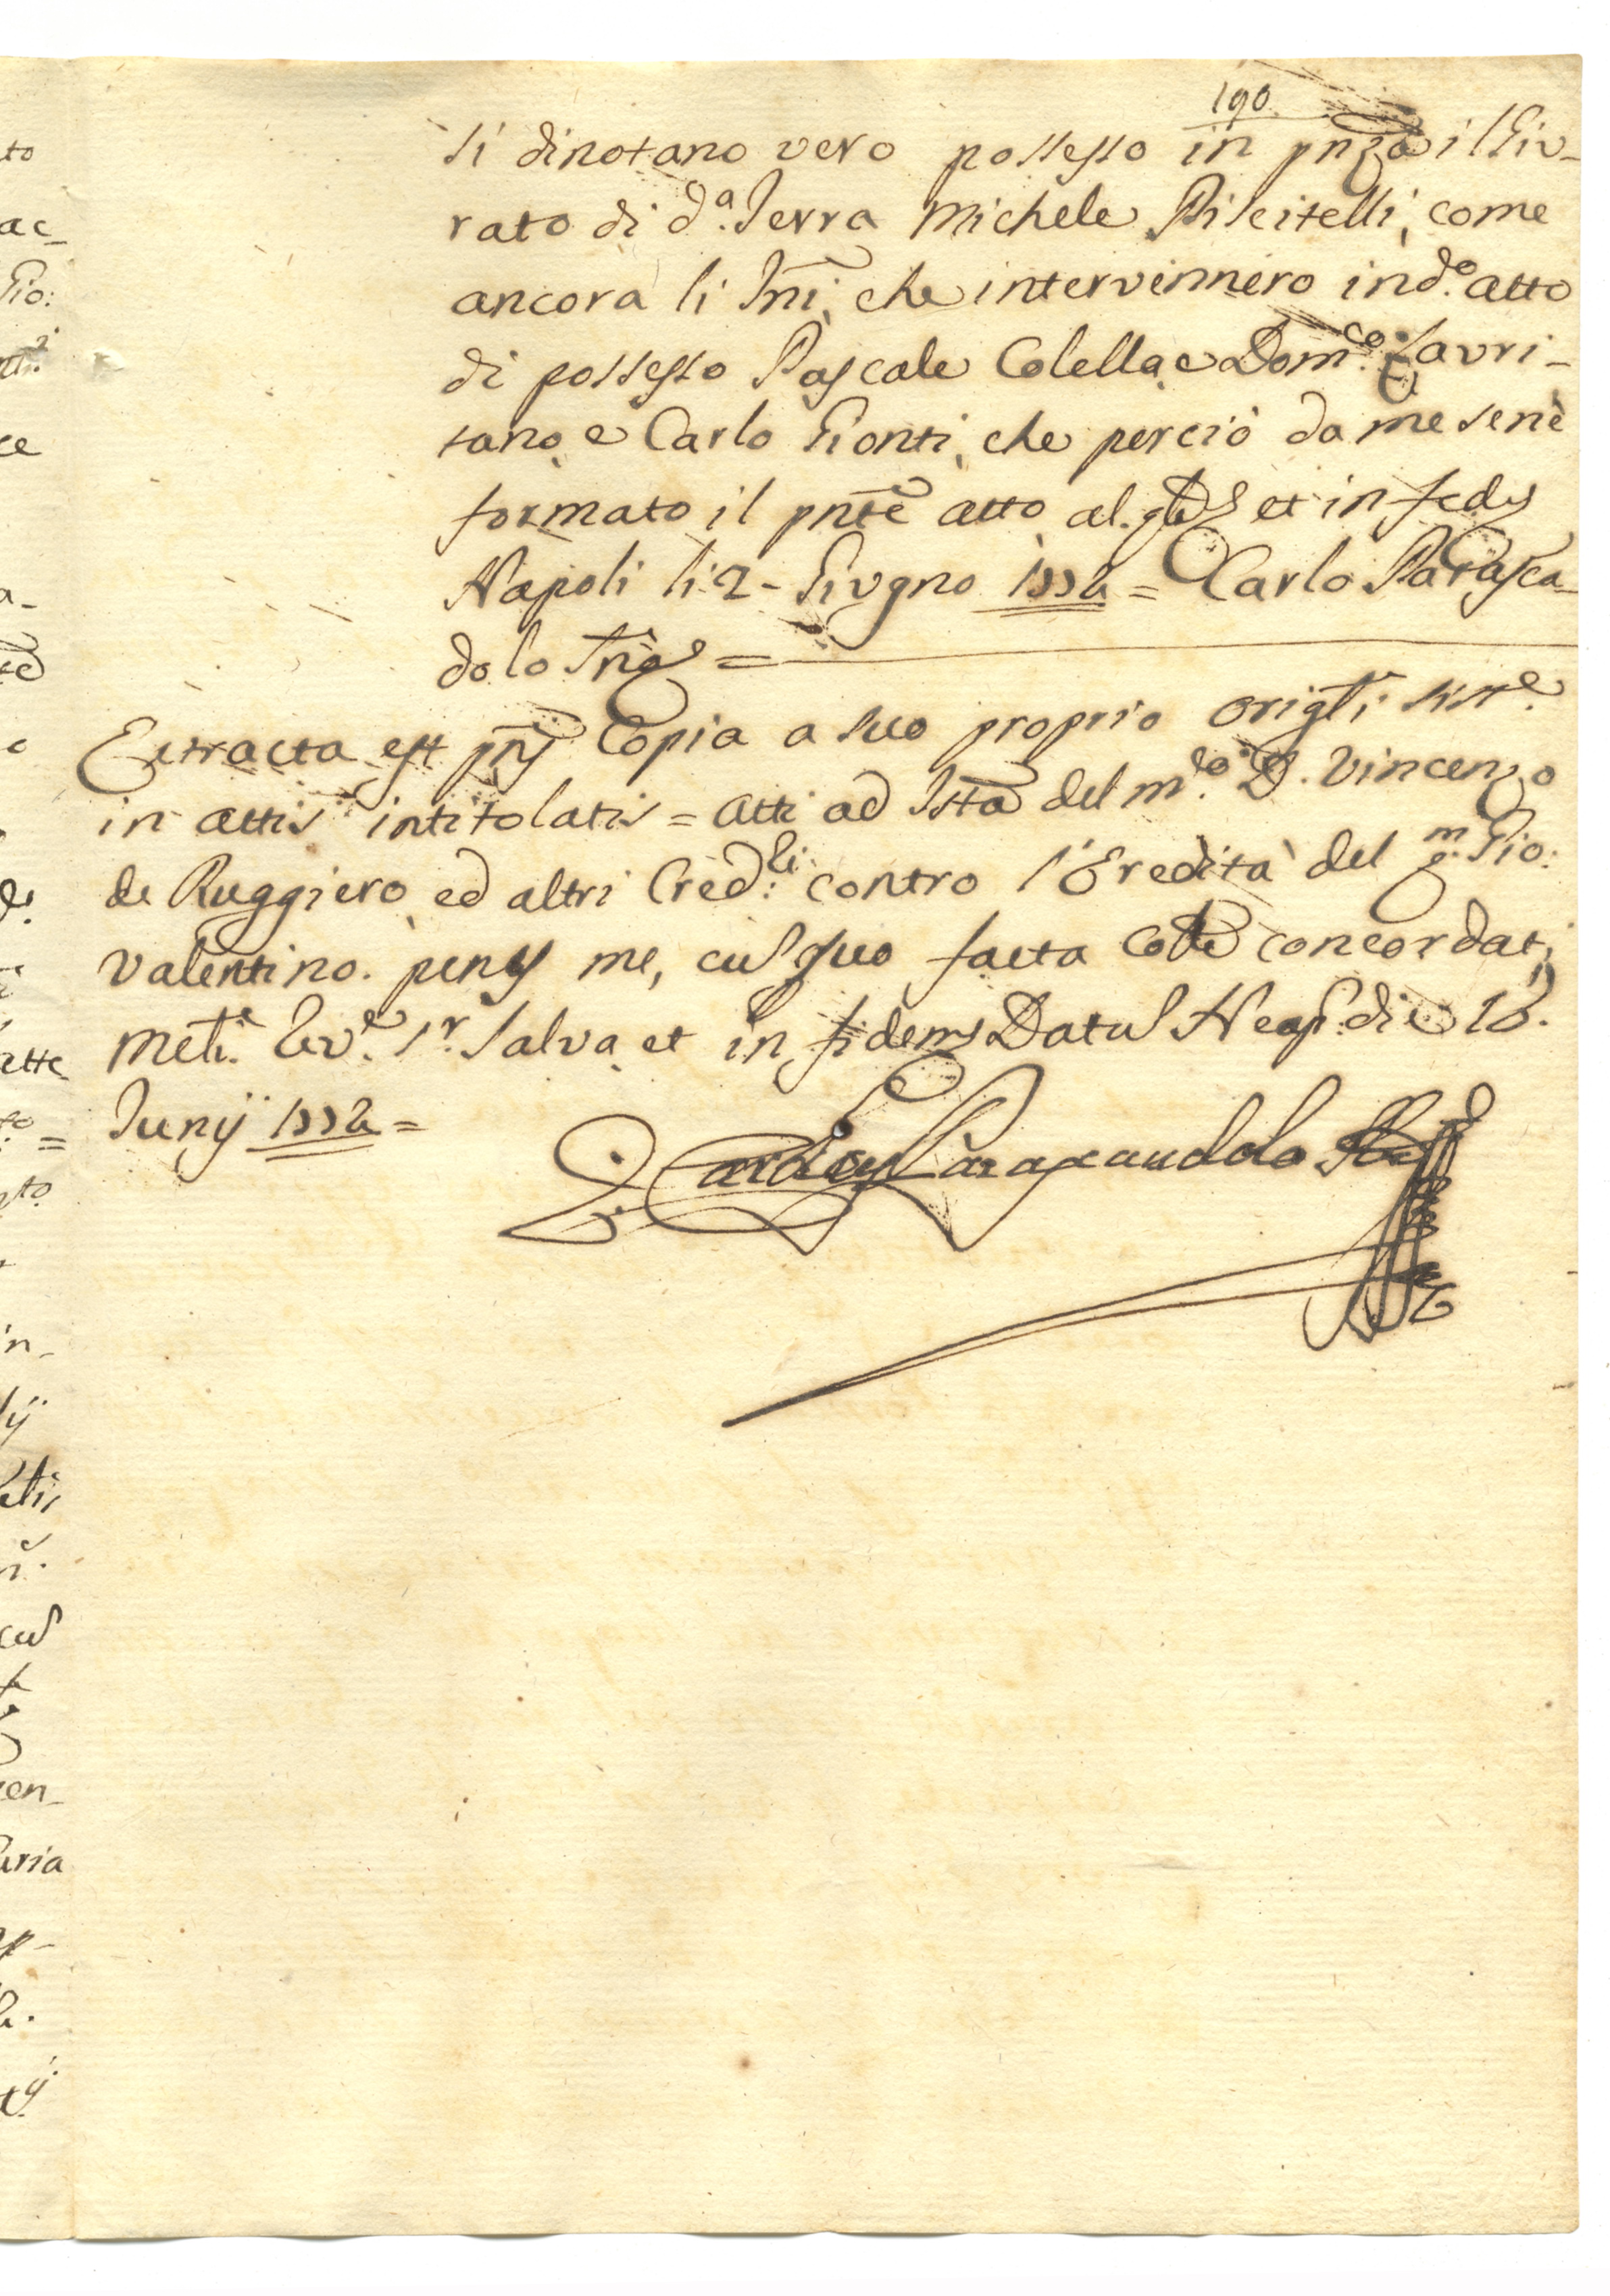 190
si dinotano vero possesso in pnza il Giu-
rato di d.a Terra Michele Piscitelli, come
ancora li Tni, che intervennero in d.o atto
di possesso Pascale Colella, e Dom.co Lauri-
tano, e Carlo Fionti, che perciò da me sene
formato il pnte atto, et in fedes
Napoli li 2 - Giugno 1772 = Carlo Parasca-
dolo =
Extracta est pns Copia a suo proprio origli sist.e
in attis intitolatis = Atti ad Ista del m.co D. Vincenzo
de Ruggiero, ed altri Cred.ri contro l'Eredità del q.m Gio:
Valentino. penes me, cum quo facta Colle concordat,
Meli.ri Rev.e S.r Salva, et in fidem Datum Neap. die 18.
Junij 1772 =
Carolus Parascandolo